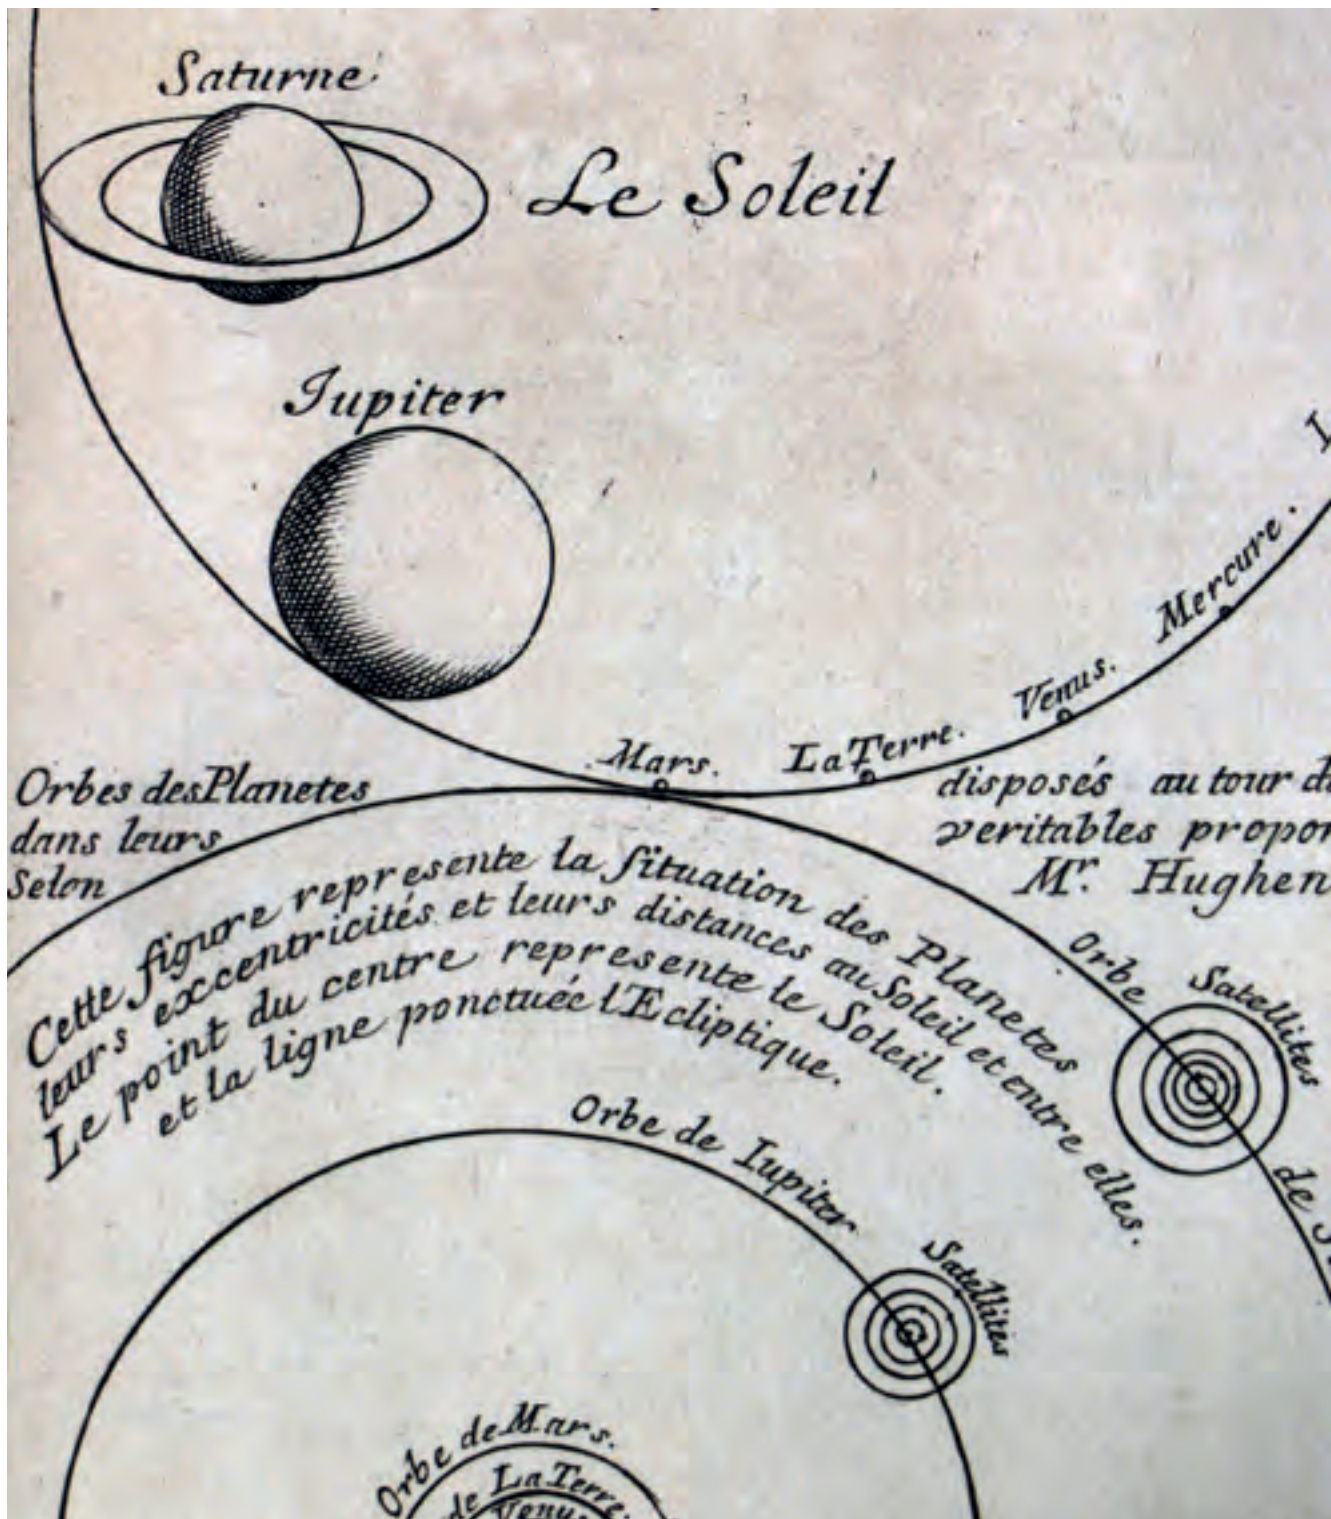 Saturne
Le Soleil
Iupiter
Mercure.
Venus.
La Terre.
Mars.
Orbes des Planetes
dans leurs
Selon
disposés au tour
veritables
Mr. Hughen
Cette figure represente la situation des Planetes
leurs excentricités et leurs distances au Soleil et entre elles.
Le point du centre represente le Soleil.
et la ligne ponctuée l'Ecliptique.
Orbe
Satellites
de
Orbe de Iupiter
Satellites
Orbe de Mars.
de La Terre.
Venus